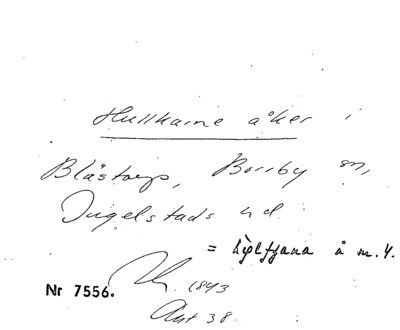 Hullkarne åker i
Blästorp, Borrby sn,
Ingelstads hd.
= å m.4.
Nr 7556. 1843
Akt 38